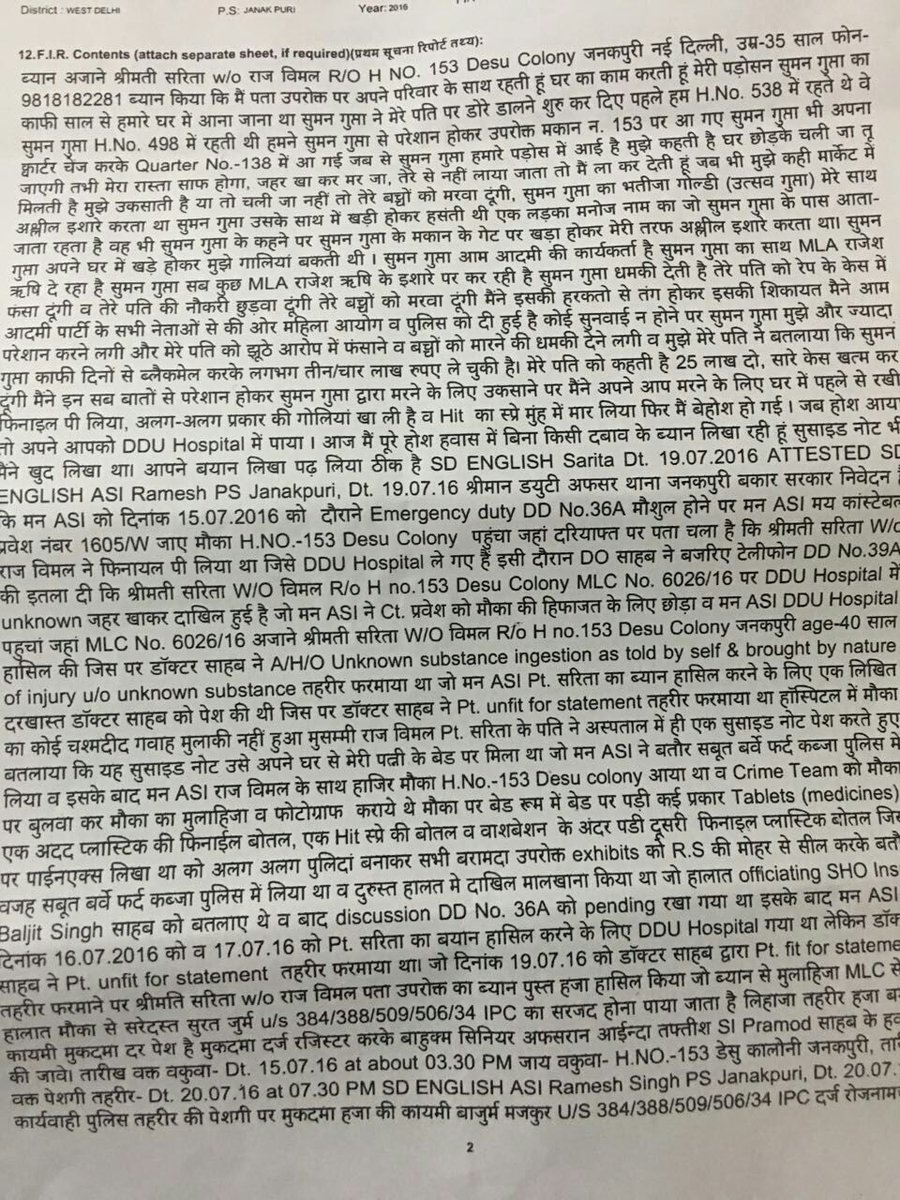 District : WEST DELHI P.S: JANAK PURI Year: 2016
12.F.I.R. Contents (attach separate sheet, if required)(प्रथम सूचना रिपोर्ट तथ्य):
ब्यान अजाने श्रीमती सरिता w/o राज विमल R/O H NO. 153 Desu Colony जनकपुरी नई दिल्ली, उम्र-35 साल फोन-
9818182281 ब्यान किया कि मैं पता उपरोक्त पर अपने परिवार के साथ रहती हूं घर का काम करती हूं मेरी पड़ोसन सुमन गुप्ता का
काफी साल से हमारे घर में आना जाना था सुमन गुप्ता ने मेरे पति पर डोरे डालने शुरु कर दिए पहले हम H.No. 538 में रहते थे वे
सुमन गुप्ता H.No. 498 में रहती थी हमने सुमन गुप्ता से परेशान होकर उपरोक्त मकान न. 153 पर आ गए सुमन गुप्ता भी अपना
क्वार्टर चेंज करके Quarter No.-138 में आ गई जब से सुमन गुप्ता हमारे पड़ोस में आई है मुझे कहती है घर छोड़के चली जा तू
जाएगी तभी मेरा रास्ता साफ होगा, जहर खा कर मर जा, तेरे से नहीं लाया जाता तो मैं ला कर देती हूं जब भी मुझे कही मार्केट में
मिलती है मुझे उकसाती है या तो चली जा नहीं तो तेरे बच्चों को मरवा दूंगी, सुमन गुप्ता का भतीजा गोल्डी (उत्सव गुप्ता) मेरे साथ
अश्लील इशारे करता था सुमन गुप्ता उसके साथ में खड़ी होकर हसंती थी एक लड़का मनोज नाम का जो सुमन गुप्ता के पास आता-
जाता रहता है वह भी सुमन गुप्ता के कहने पर सुमन गुप्ता के मकान के गेट पर खड़ा होकर मेरी तरफ अश्लील इशारे करता था। सुमन
गुप्ता अपने घर में खड़े होकर मुझे गालियां बकती थी । सुमन गुप्ता आम आदमी की कार्यकर्ता है सुमन गुप्ता का साथ MLA राजेश
ऋषि दे रहा है सुमन गुप्ता सब कुछ MLA राजेश ऋषि के इशारे पर कर रही है सुमन गुप्ता धमकी देती है तेरे पति को रेप के केस में
फंसा दूंगी व तेरे पति की नौकरी छुड़वा दूंगी तेरे बच्चों को मरवा दूंगी मैंने इसकी हरकतो से तंग होकर इसकी शिकायत मैने आम
आदमी पार्टी के सभी नेताओं से की ओर महिला आयोग व पुलिस को दी हुई है कोई सुनवाई न होने पर सुमन गुप्ता मुझे और ज्यादा
परेशान करने लगी और मेरे पति को झूठे आरोप में फंसाने व बच्चों को मारने की धमकी देने लगी व मुझे मेरे पति ने बतलाया कि सुमन
गुप्ता काफी दिनों से ब्लैकमेल करके लगभग तीन/चार लाख रुपए ले चुकी है। मेरे पति को कहती है 25 लाख दो, सारे केस खत्म कर
दूंगी मैंने इन सब बातों से परेशान होकर सुमन गुप्ता द्वारा मरने के लिए उकसाने पर मैंने अपने आप मरने के लिए घर में पहले से रखी
फिनाइल पी लिया, अलग-अलग प्रकार की गोलियां खा ली है व Hit का स्प्रे मुंह में मार लिया फिर मैं बेहोश हो गई । जब होश आया
तो अपने आपको DDU Hospital में पाया । आज मैं पूरे होश हवास में बिना किसी दबाव के ब्यान लिखा रही हूं सुसाइड नोट भी
मैंने खुद लिखा था। आपने बयान लिखा पढ़ लिया ठीक है SD ENGLISH Sarita Dt. 19.07.2016 ATTESTED SD
ENGLISH ASI Ramesh PS Janakpuri, Dt. 19.07.16 श्रीमान डयुटी अफसर थाना जनकपुरी बकार सरकार निवेदन है
कि मन ASI को दिनांक 15.07.2016 को दौराने Emergency duty DD No.36A मौशुल होने पर मन ASI मय कांस्टेबल
प्रवेश नंबर 1605/W जाए मौका H.NO.-153 Desu Colony पहुंचा जहां दरियाफ्त पर पता चला है कि श्रीमती सरिता W/o
राज विमल ने फिनायल पी लिया था जिसे DDU Hospital ले गए हैं इसी दौरान DO साहब ने बजरिए टेलीफोन DD No.39A
की इतला दी कि श्रीमती सरिता W/O विमल R/o H no.153 Desu Colony MLC No. 6026/16 पर DDU Hospital में
unknown जहर खाकर दाखिल हुई है जो मन ASI ने Ct. प्रवेश को मौका की हिफाजत के लिए छोड़ा व मन ASI DDU Hospital
पहुचां जहां MLC No. 6026/16 अजाने श्रीमती सरिता W/O विमल R/o H no.153 Desu Colony जनकपुरी age-40 साल
हासिल की जिस पर डॉक्टर साहब ने A/H/O Unknown substance ingestion as told by self & brought by nature
of injury u/o unknown substance तहरीर फरमाया था जो मन ASI Pt. सरिता का ब्यान हासिल करने के लिए एक लिखित
दरखास्त डॉक्टर साहब को पेश की थी जिस पर डॉक्टर साहब ने Pt. unfit for statement तहरीर फरमाया था हॉस्पिटल में मौका
का कोई चश्मदीद गवाह मुलाकी नहीं हुआ मुसम्मी राज विमल Pt. सरिता के पति ने अस्पताल में ही एक सुसाइड नोट पेश करते हुए
बतलाया कि यह सुसाइड नोट उसे अपने घर से मेरी पत्नी के बेड पर मिला था जो मन ASI ने बतौर सबूत बर्वे फर्द कब्जा पुलिस मे
लिया व इसके बाद मन ASI राज विमल के साथ हाजिर मौका H.No.-153 Desu colony आया था व Crime Team को मौका
पर बुलवा कर मौका का मुलाहिजा व फोटोग्राफ कराये थे मौका पर बेड रूम में बेड पर पड़ी कई प्रकार Tablets (medicines)
एक अदद प्लास्टिक की फिनाईल बोतल, एक Hit स्प्रे की बोतल व वाशबेशन के अंदर पडी दूसरी फिनाइल प्लास्टिक बोतल जिस
पर पाईनएक्स लिखा था को अलग अलग पुलिदां बनाकर सभी बरामदा उपरोक्त exhibits को R.S की मोहर से सील करके बतौ
वजह सबूत बर्वे फर्द कब्जा पुलिस में लिया था व दुरुस्त हालत मे दाखिल मालखाना किया था जो हालात officiating SHO Ins
Baljit Singh साहब को बतलाए थे व बाद discussion DD No. 36A को pending रखा गया था इसके बाद मन ASI
दिनांक 16.07.2016 को व 17.07.16 को Pt. सरिता का बयान हासिल करने के लिए DDU Hospital गया था लेकिन डॉक्
साहब ने Pt. unfit for statement तहरीर फरमाया था। जो दिनांक 19.07.16 को डॉक्टर साहब द्वारा Pt. fit for stateme
तहरीर फरमाने पर श्रीमति सरिता w/o राज विमल पता उपरोक्त का ब्यान पुस्त हजा हासिल किया जो ब्यान से मुलाहिजा MLC से
हालात मौका से सरेदस्त सुरत जुर्म u/s 384/388/509/506/34 IPC का सरजद होना पाया जाता है लिहाजा तहरीर हजा ब
कायमी मुकदमा दर पेश है मुकदमा दर्ज रजिस्टर करके बाहुक्म सिनियर अफसरान आईन्दा तफ्तीश SI Pramod साहब के हव
की जावे। तारीख वक्त वकुवा- Dt. 15.07.16 at about 03.30 PM जाय वकुवा- H.NO.-153 डेसु कालोनी जनकपुरी, तारी
वक्त पेशगी तहरीर- Dt. 20.07.16 at 07.30 PM SD ENGLISH ASI Ramesh Singh PS Janakpuri, Dt. 20.07.
कार्यवाही पुलिस तहरीर की पेशगी पर मुकदमा हजा की कायमी बाजुर्म मजकुर U/S 384/388/509/506/34 IPC दर्ज रोजनाम
2